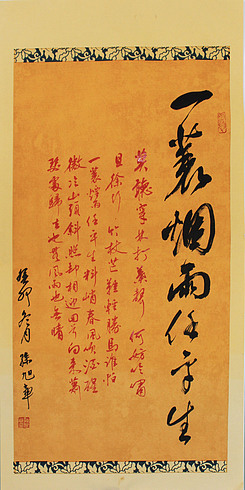 一蓑烟雨任平生
莫听穿林打叶声 何妨吟啸
且徐行 竹杖芒鞋轻胜马谁怕
一蓑烟雨任平生料峭春风吹酒醒
微冷山头斜照却相迎回首向来萧
瑟处归去也无风雨也无晴
癸卯冬月 陈旭军